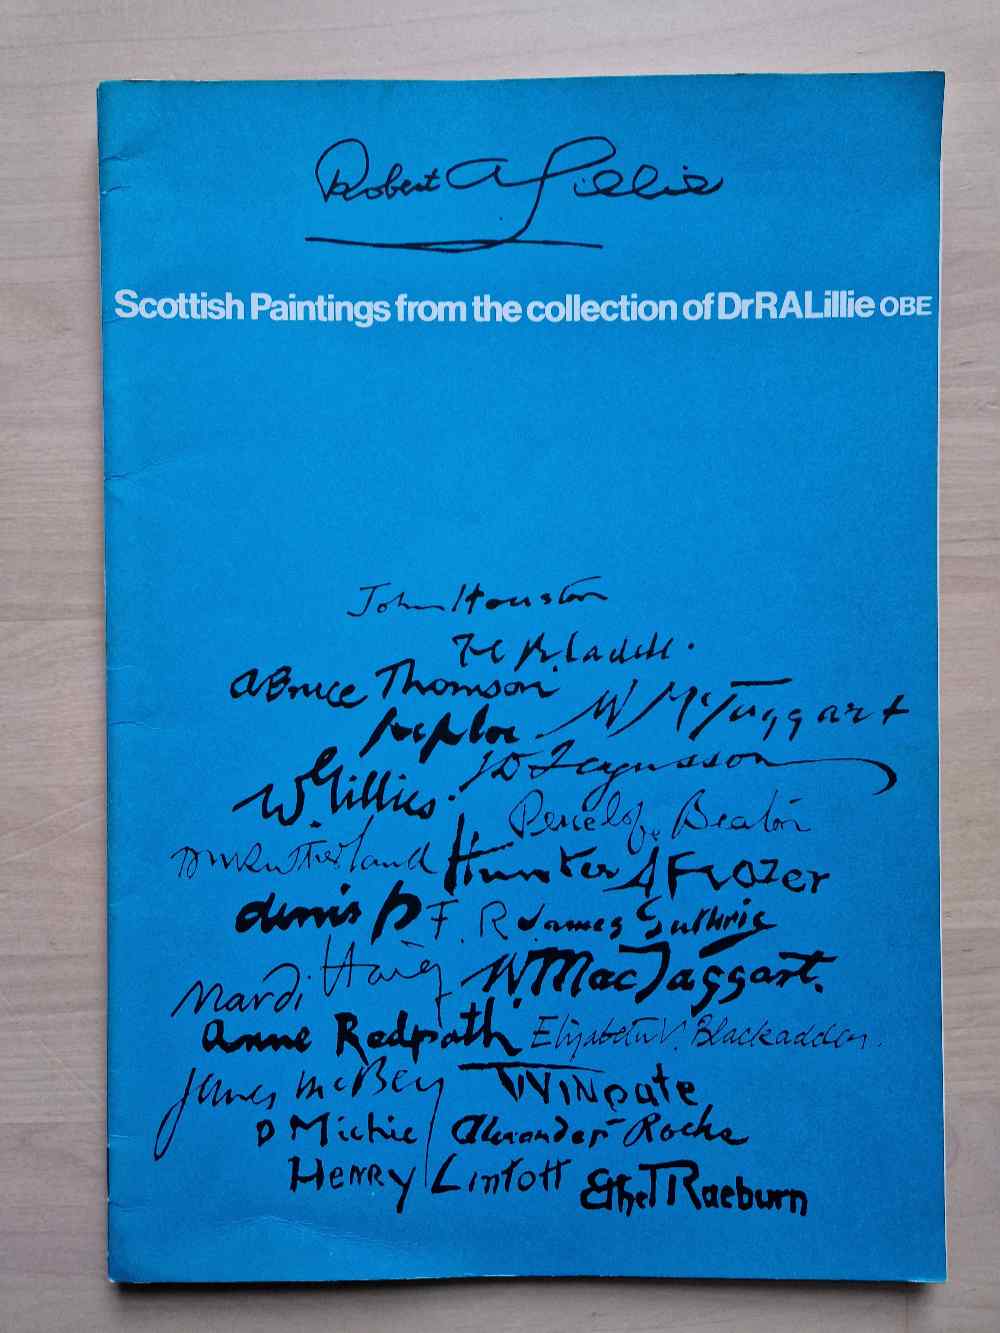 Robert A Lillie
Scottish Paintings from the collection of Dr RA Lillie OBE
John Houston
FC B Cadell.
A Bruce Thomson
Peploe W McTaggart
W Gillies. JD Fergusson
Penelope Beaton
DM Sutherland Hunter A Frazer
denis P F. R. James Guthrie
Mardi Haig W. MacTaggart.
Anne Redpath Elizabeth V. Blackadder.
James McBey Wingate
D Michie Alexander Roche
Henry Lintott Ethel Raeburn